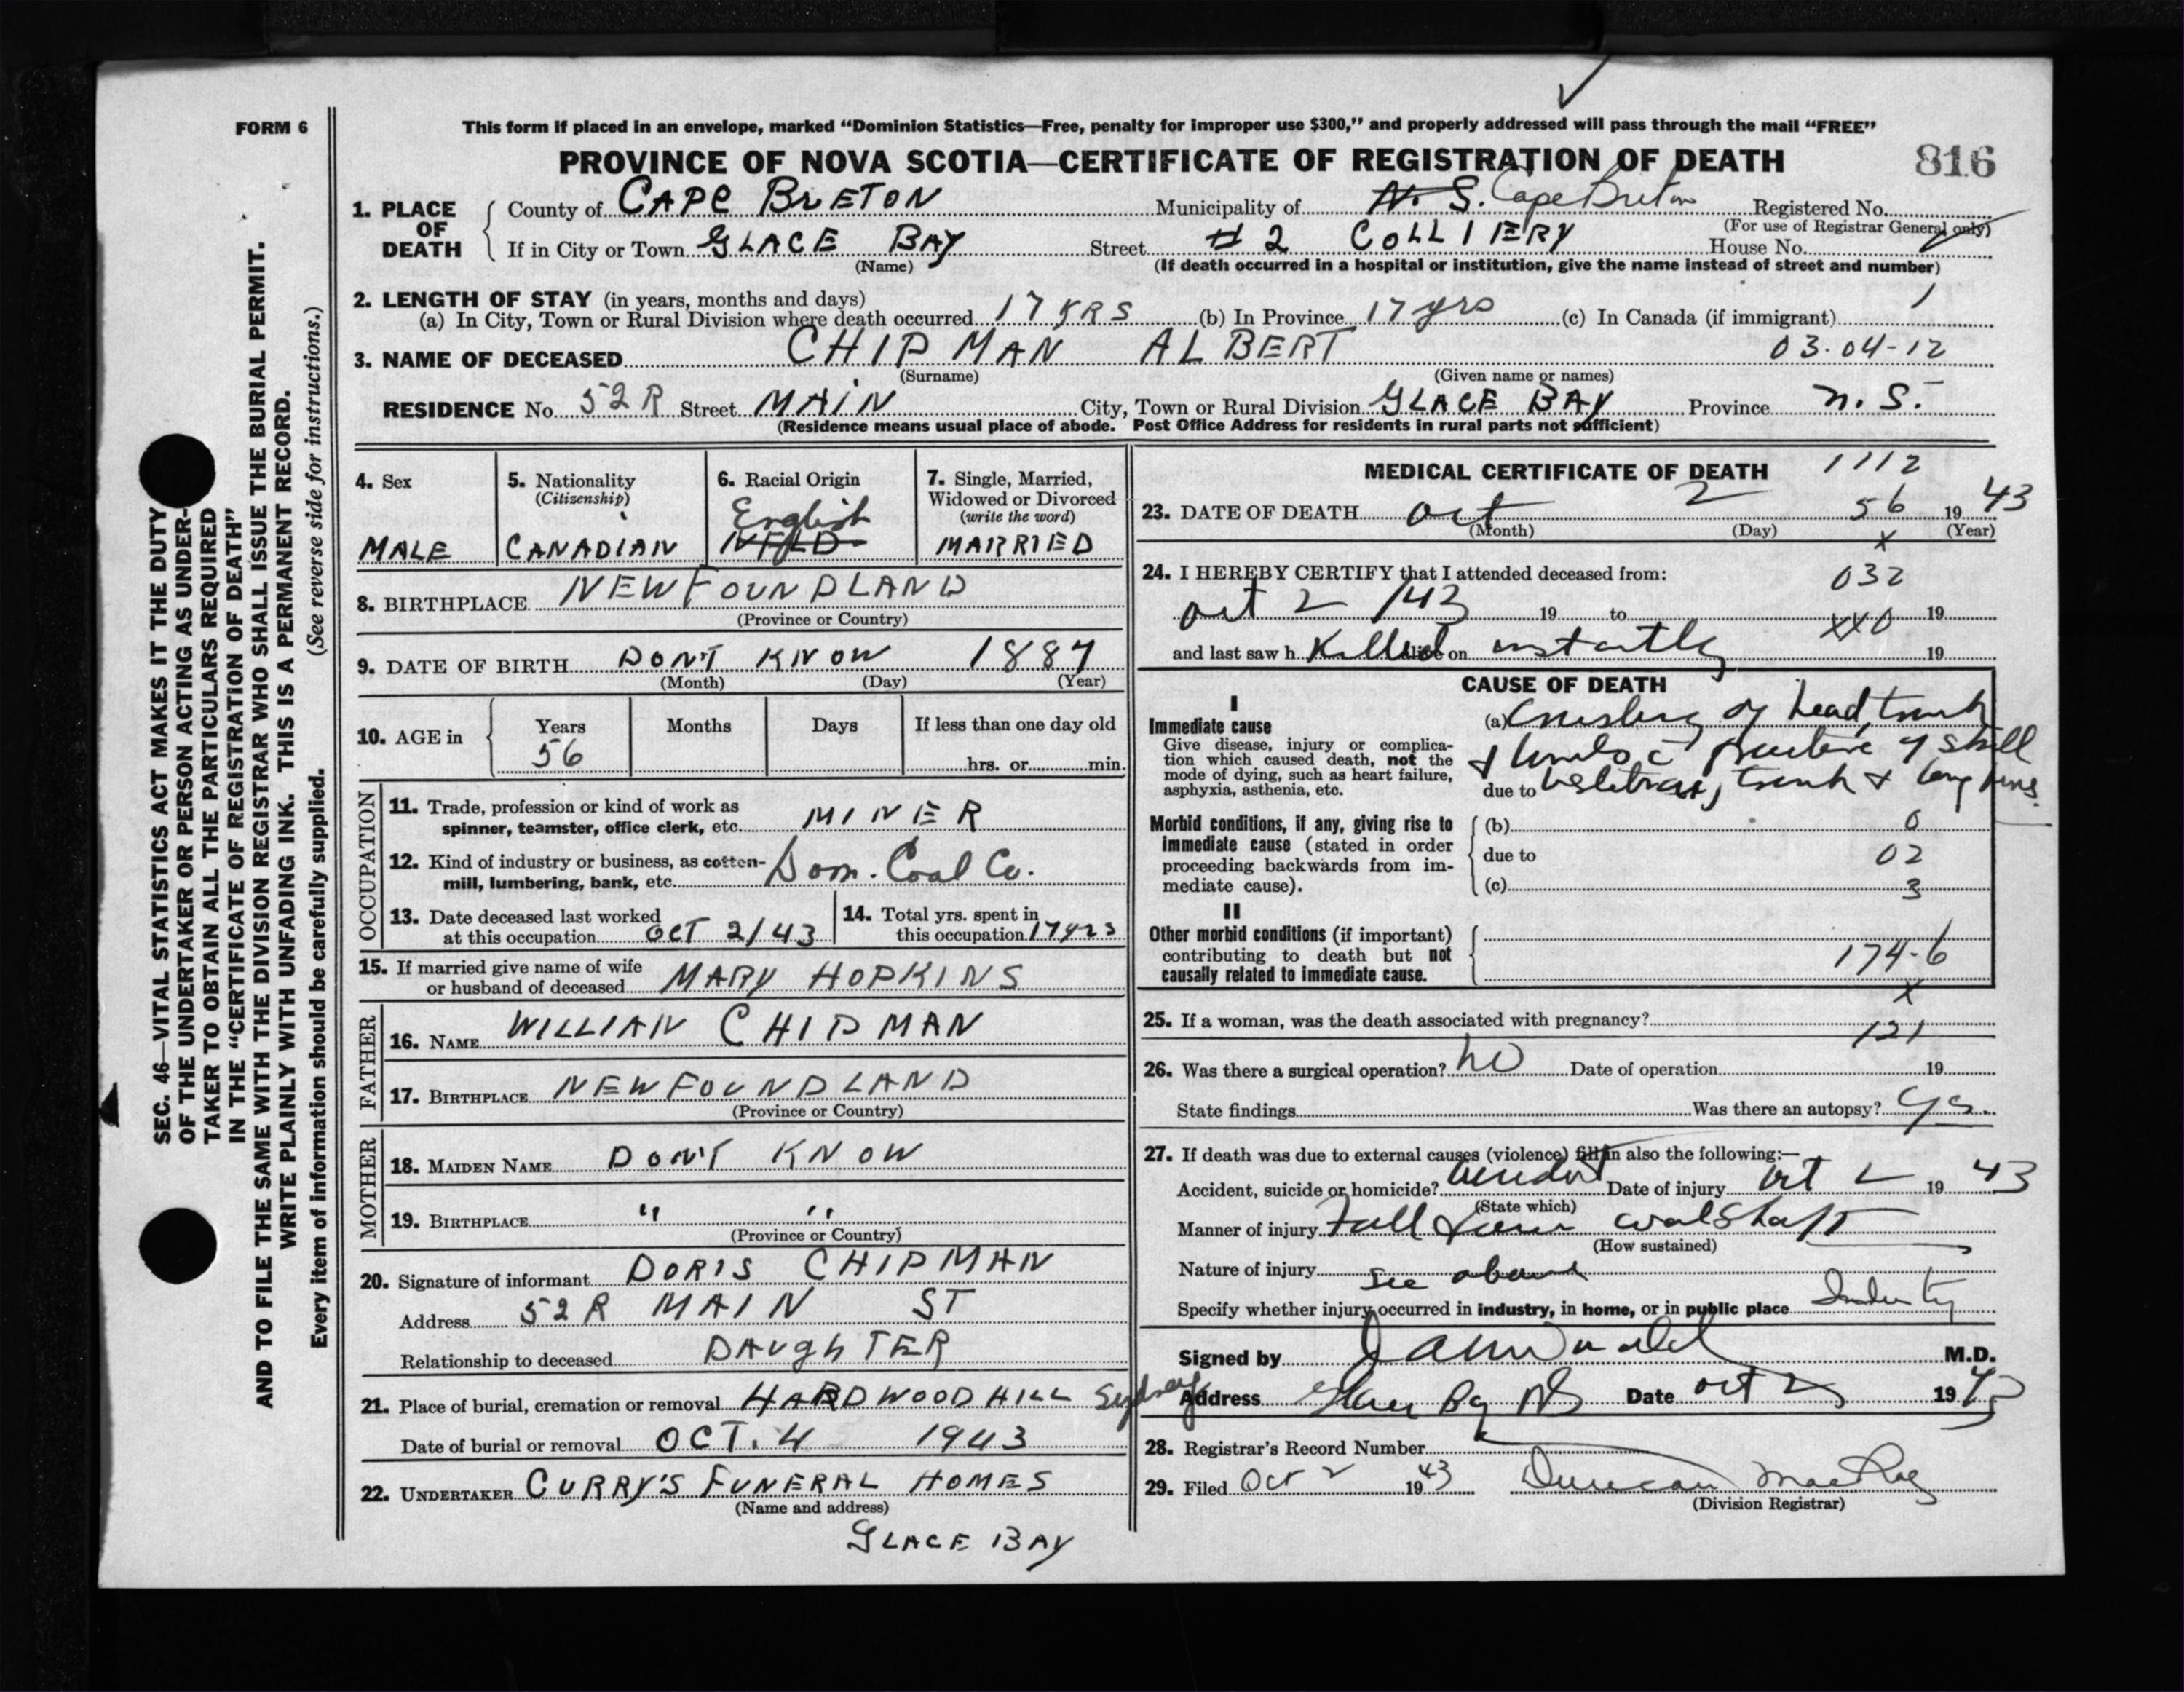 FORM 6
This form if placed in an envelope, marked “Dominion Statistics—Free, penalty for improper use $300,” and properly addressed will pass through the mail “FREE”
PROVINCE OF NOVA SCOTIA—CERTIFICATE OF REGISTRATION OF DEATH 816
1. PLACE OF DEATH
County of CAPE BRETON Municipality of N. S. Cape Breton Registered No.
(For use of Registrar General only)
If in City or Town GLACE BAY Street # 2 COLLIERY House No.
(Name) (If death occurred in a hospital or institution, give the name instead of street and number)
2. LENGTH OF STAY (in years, months and days)
(a) In City, Town or Rural Division where death occurred 17 YRS (b) In Province 17 yrs (c) In Canada (if immigrant) 1
3. NAME OF DECEASED CHIPMAN ALBERT 03-04-12
(Surname) (Given name or names)
RESIDENCE No. 52R Street MAIN City, Town or Rural Division GLACE BAY Province N. S.
(Residence means usual place of abode. Post Office Address for residents in rural parts not sufficient)
4. Sex
MALE
5. Nationality
(Citizenship)
CANADIAN
6. Racial Origin
English
NFLD
7. Single, Married,
Widowed or Divorced
(write the word)
MARRIED
8. BIRTHPLACE NEWFOUNDLAND
(Province or Country)
9. DATE OF BIRTH DON'T KNOW 1887
(Month) (Day) (Year)
10. AGE in
Years Months Days If less than one day old
56 hrs. or min.
OCCUPATION
11. Trade, profession or kind of work as
spinner, teamster, office clerk, etc. MINER
12. Kind of industry or business, as cotten-
mill, lumbering, bank, etc. Dom. Coal Co.
13. Date deceased last worked
at this occupation OCT 2/43
14. Total yrs. spent in
this occupation 17
15. If married give name of wife
or husband of deceased MARY HOPKINS
FATHER
16. NAME WILLIAN CHIPMAN
17. BIRTHPLACE NEWFOUNDLAND
(Province or Country)
MOTHER
18. MAIDEN NAME DON'T KNOW
19. BIRTHPLACE " "
(Province or Country)
20. Signature of informant DORIS CHIPMAN
Address 52R MAIN ST
Relationship to deceased DAUGHTER
21. Place of burial, cremation or removal HARDWOOD HILL Sydney
Date of burial or removal OCT. 4 1943
22. UNDERTAKER CURRY'S FUNERAL HOMES
(Name and address)
GLACE BAY
MEDICAL CERTIFICATE OF DEATH 1112
23. DATE OF DEATH Oct 2 56 1943
(Month) (Day) (Year)
x
24. I HEREBY CERTIFY that I attended deceased from: 032
Oct 2 /43 19 to 19
xx0
and last saw h Killed alive on instantly 19
CAUSE OF DEATH
I
Immediate cause
Give disease, injury or complica-
tion which caused death, not the
mode of dying, such as heart failure,
asphyxia, asthenia, etc.
(a) Crushing of head, trunk
& limbs c fracture of skull
due to vertebrae, trunk & long bones.
Morbid conditions, if any, giving rise to
immediate cause (stated in order
proceeding backwards from im-
mediate cause).
(b) 0
due to 02
(c) 3
II
Other morbid conditions (if important)
contributing to death but not
causally related to immediate cause.
174-6
x
25. If a woman, was the death associated with pregnancy?
121
26. Was there a surgical operation? no Date of operation 19
State findings Was there an autopsy? Yes.
27. If death was due to external causes (violence) fill in also the following:—
Accident, suicide or homicide? Accident Date of injury Oct 2 1943
(State which)
Manner of injury Fall down coal shaft
(How sustained)
Nature of injury See above
Specify whether injury occurred in industry, in home, or in public place Industry
Signed by M.D.
Address Glace Bay NS Date Oct 2 1943
28. Registrar's Record Number
29. Filed Oct 2 1943 Duncan MacRae
(Division Registrar)
SEC. 46—VITAL STATISTICS ACT MAKES IT THE DUTY
OF THE UNDERTAKER OR PERSON ACTING AS UNDER-
TAKER TO OBTAIN ALL THE PARTICULARS REQUIRED
IN THE “CERTIFICATE OF REGISTRATION OF DEATH”
AND TO FILE THE SAME WITH THE DIVISION REGISTRAR WHO SHALL ISSUE THE BURIAL PERMIT.
WRITE PLAINLY WITH UNFADING INK. THIS IS A PERMANENT RECORD.
Every item of information should be carefully supplied. (See reverse side for instructions.)